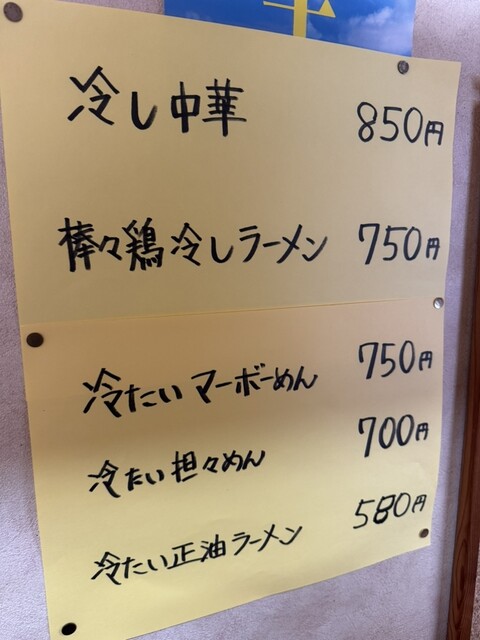 冷し中華 850円
棒々鶏冷しラーメン 750円
冷たいマーボーめん 750円
冷たい担々めん 700円
冷たい正油ラーメン 580円